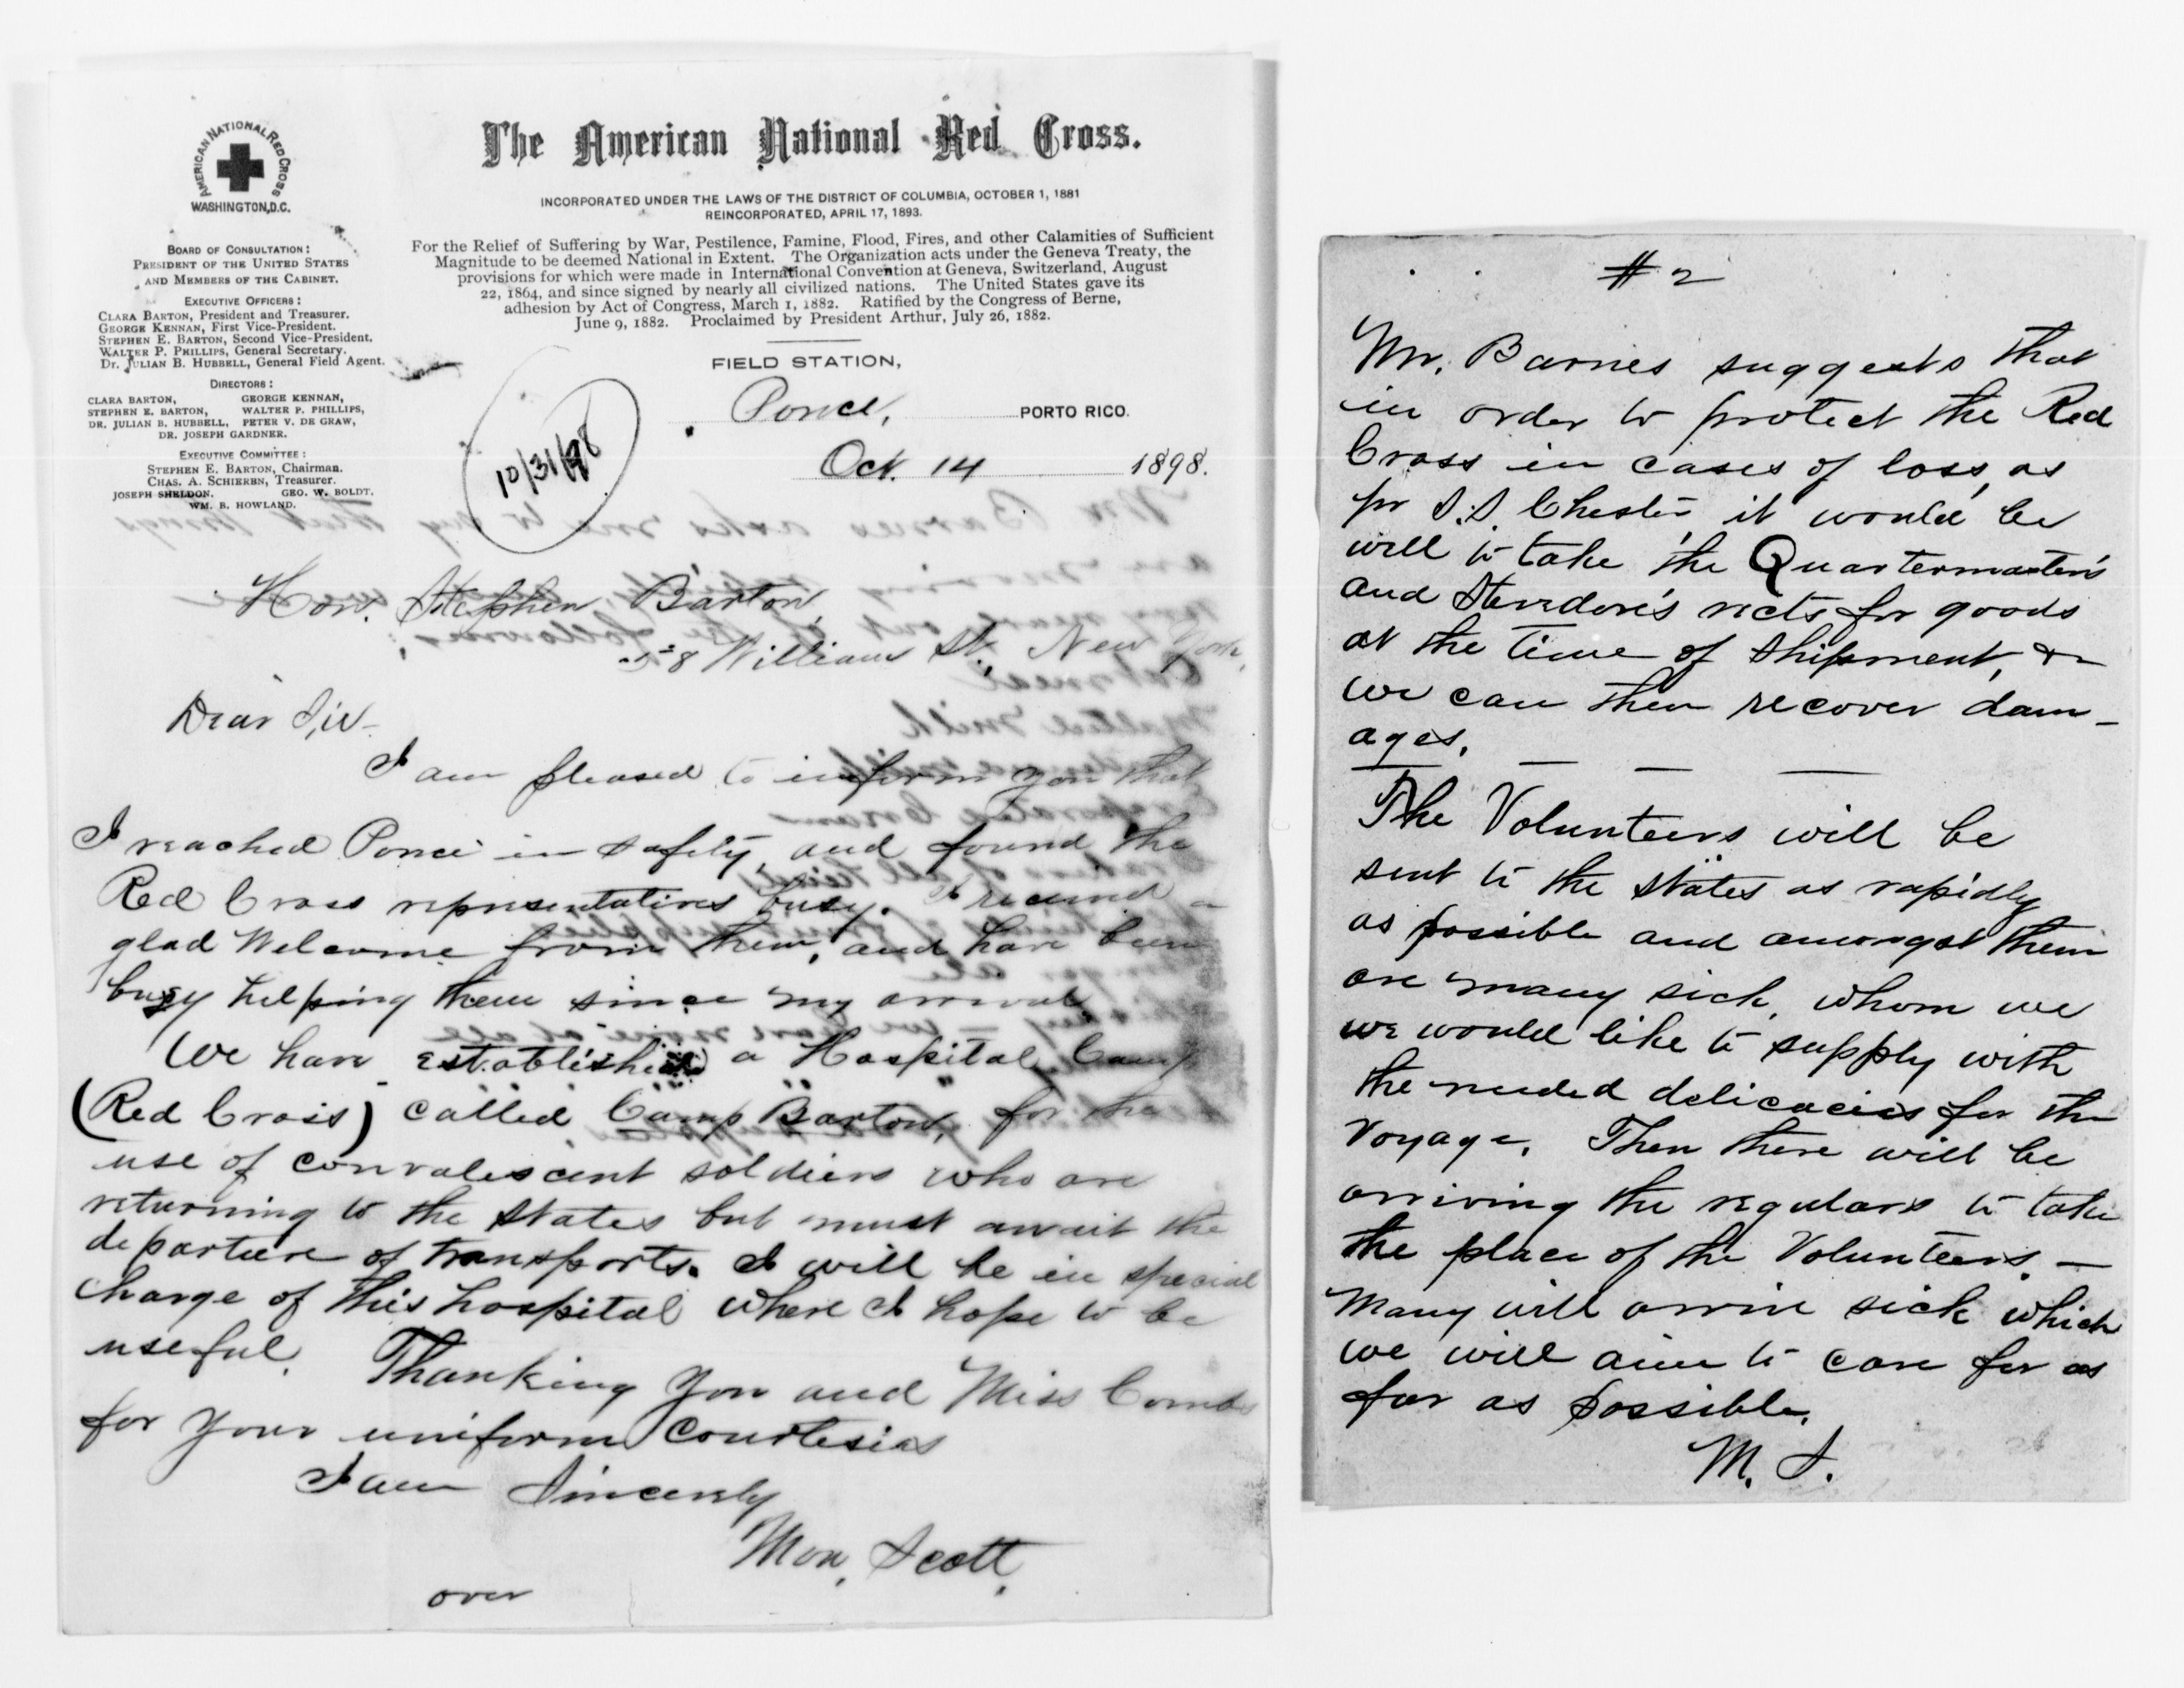 AMERICAN NATIONAL RED CROSS
WASHINGTON, D.C.
The American National Red Cross.
INCORPORATED UNDER THE LAWS OF THE DISTRICT OF COLUMBIA, OCTOBER 1, 1881
REINCORPORATED, APRIL 17, 1893.
For the Relief of Suffering by War, Pestilence, Famine, Flood, Fires, and other Calamities of Sufficient
Magnitude to be deemed National in Extent. The Organization acts under the Geneva Treaty, the
provisions for which were made in International Convention at Geneva, Switzerland, August
22, 1864, and since signed by nearly all civilized nations. The United States gave its
adhesion by Act of Congress, March 1, 1882. Ratified by the Congress of Berne,
June 9, 1882. Proclaimed by President Arthur, July 26, 1882.
BOARD OF CONSULTATION:
PRESIDENT OF THE UNITED STATES
AND MEMBERS OF THE CABINET.
EXECUTIVE OFFICERS:
CLARA BARTON, President and Treasurer.
GEORGE KENNAN, First Vice-President.
STEPHEN E. BARTON, Second Vice-President.
WALTER P. PHILLIPS, General Secretary.
Dr. JULIAN B. HUBBELL, General Field Agent.
DIRECTORS:
CLARA BARTON, GEORGE KENNAN,
STEPHEN E. BARTON, WALTER P. PHILLIPS,
DR. JULIAN B. HUBBELL, PETER V. DE GRAW,
DR. JOSEPH GARDNER.
EXECUTIVE COMMITTEE:
STEPHEN E. BARTON, Chairman.
CHAS. A. SCHIEREN, Treasurer.
JOSEPH SHELDON. GEO. W. BOLDT.
WM. B. HOWLAND.
FIELD STATION,
Ponce, PORTO RICO.
Oct. 14 1898.
10/31/98
Hon. Stephen Barton,
58 William St., New York,
Dear Sir-
I am pleased to inform you that
I reached Ponce in safety, and found the
Red Cross representatives busy. I received a
glad Welcome from them, and have been
busy helping them since my arrival.
We have established a Hospital Camp
(Red Cross) called Camp Barton, for the
use of convalescent soldiers who are
returning to the States but must await the
departure of transports. I will be in special
charge of this hospital where I hope to be
useful. Thanking you and Miss Combs
for your uniform courtesies
I am Sincerely
Scott.
over
#2
Mr. Barnes suggests that
in order to protect the Red
Cross in cases of loss, as
pr S.S. Chester, it would be
well to take the Quartermaster's
and Stevedore's rects for goods
at the time of shipment, &
we can then recover dam-
ages.
The Volunteers will be
sent to the States as rapidly
as possible and amongst them
are many sick, whom we
we would like to supply with
the needed delicacies for the
voyage. Then there will be
arriving the regulars to take
the place of the Volunteers. —
Many will arrive sick which
we will aim to care for as
far as possible.
M. S.